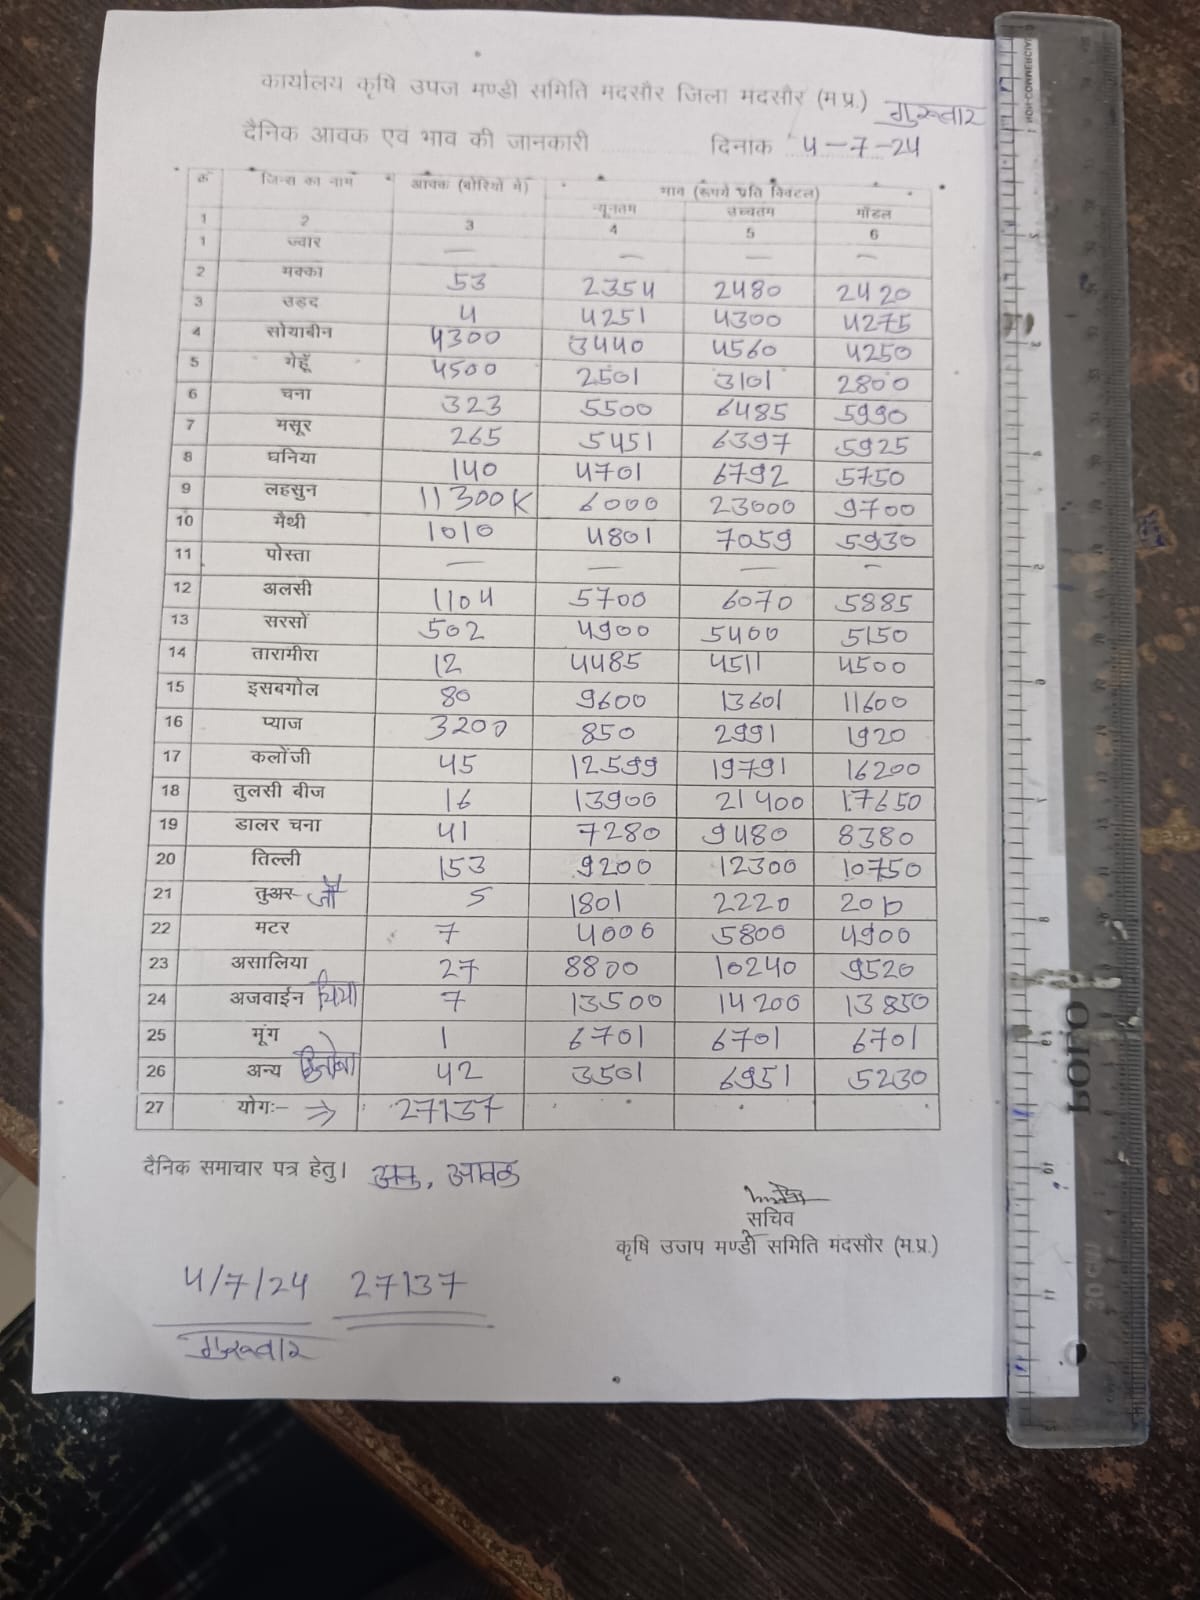 कार्यालय कृषि उपज मण्डी समिति मंदसौर जिला मंदसौर (म.प्र.) गुरूवार
दैनिक आवक एवं भाव की जानकारी दिनांक 4-7-24
क्रं जिन्स का नाम आवक (बोरियों में) भाव (रूपये प्रति क्विंटल)
न्यूनतम उच्चतम मॉडल
1 2 3 4 5 6
1 ज्वार — — — —
2 मक्का 53 2354 2480 2420
3 उड़द 4 4251 4300 4275
4 सोयाबीन 4300 3440 4560 4250
5 गेहूँ 4500 2501 3101 2800
6 चना 323 5500 6485 5990
7 मसूर 265 5451 6397 5925
8 धनिया 140 4701 6792 5750
9 लहसुन 11300K 6000 23000 9700
10 मैथी 1010 4801 7059 5930
11 पोस्ता — — — —
12 अलसी 1104 5700 6070 5885
13 सरसों 502 4900 5400 5150
14 तारामीरा 12 4485 4511 4500
15 इसबगोल 80 9600 13601 11600
16 प्याज 3200 850 2991 1920
17 कलोंजी 45 12599 19791 16200
18 तुलसी बीज 16 13900 21400 17650
19 डालर चना 41 7280 9480 8380
20 तिल्ली 153 9200 12300 10750
21 तुअर जौ 5 1801 2220 2010
22 मटर 7 4000 5800 4900
23 असालिया 27 8800 10240 9520
24 अजवाईन चिया 7 13500 14200 13850
25 मूंग 1 6701 6701 6701
26 अन्य 42 3501 6951 5230
27 योगः- => 27137
दैनिक समाचार पत्र हेतु। आवक
सचिव
कृषि उजप मण्डी समिति मंदसौर (म.प्र.)
4/7/24 27137
गुरूवार
NON-COMMERCIAL
FOFO
20 cm